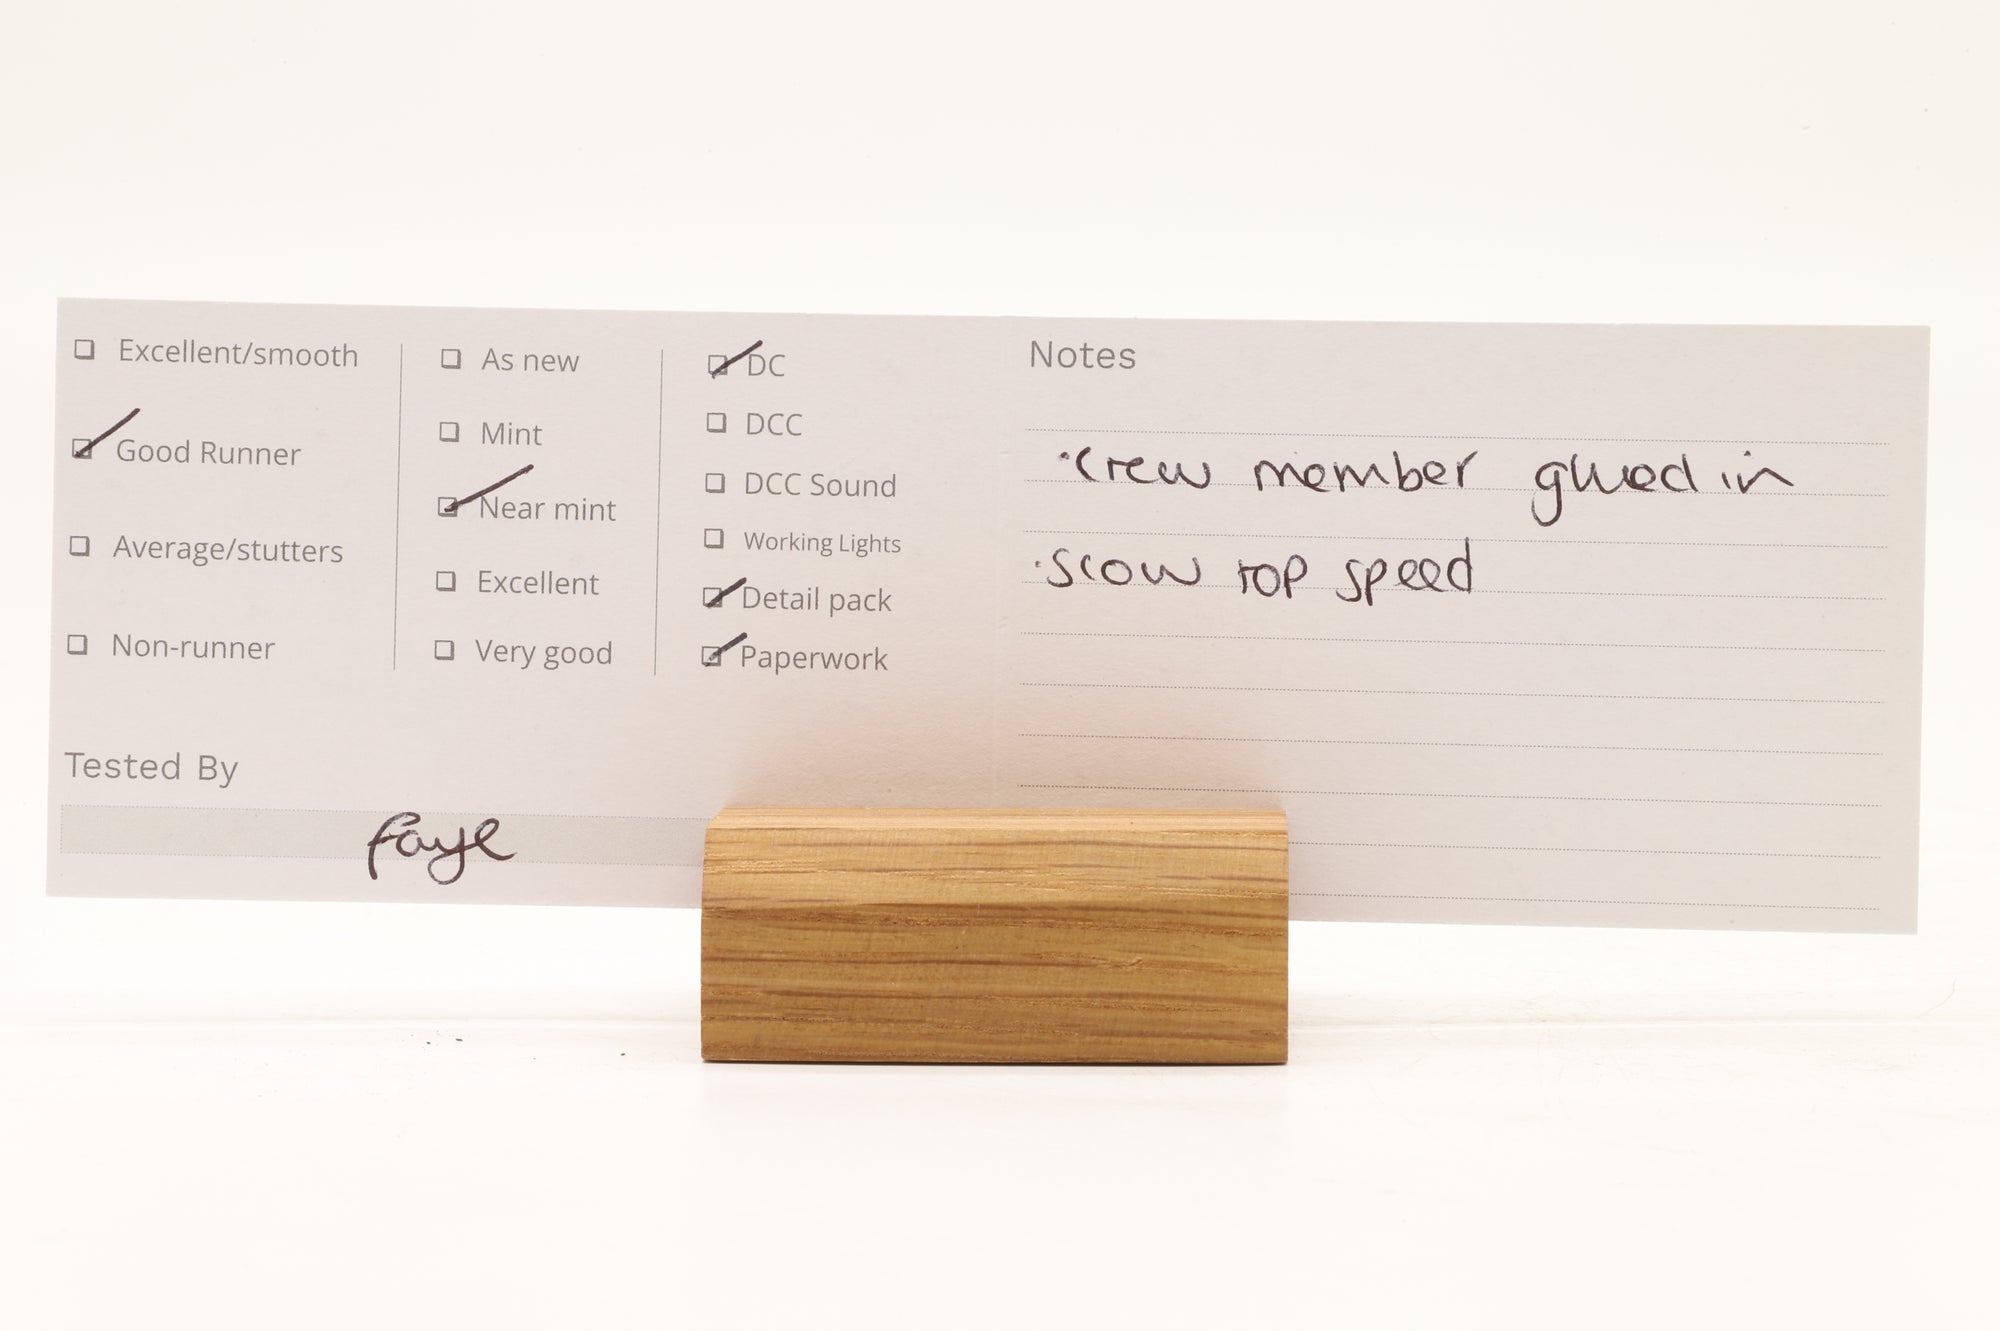 Excellent/smooth
Good Runner
Average/stutters
Non-runner
As new
Mint
Near mint
Excellent
Very good
DC
DCC
DCC Sound
Working Lights
Detail pack
Paperwork
Tested By
faye
Notes
·crew member glued in
·slow top speed